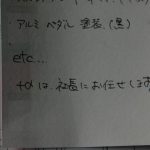 ・アルミ ペダル 塗装 (黒)
・
etc...
+αは、社長にお任せします